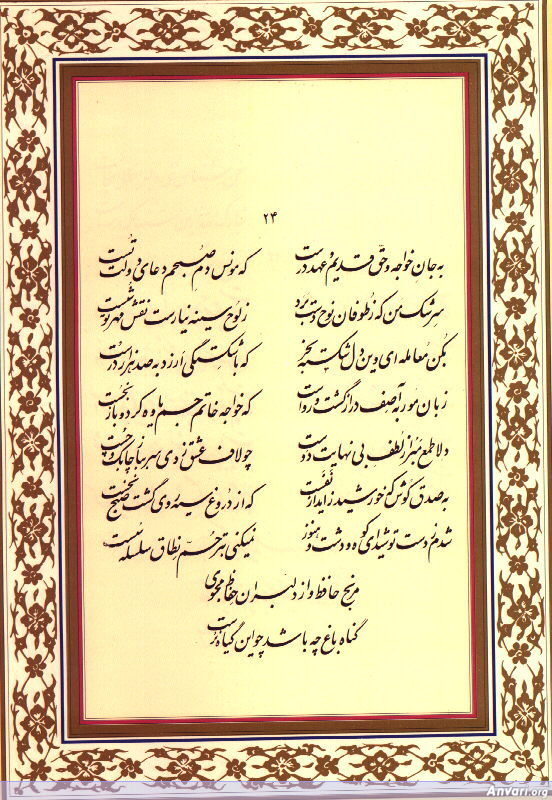 ۲۴
به جان خواجه و حق قدیم و عهد درست که مونس دم صبحم دعای دولت تست
سرشک من که ز طوفان نوح دست برد ز لوح سینه نیارست نقش مهر تو شست
بکن معامله ای وین دل شکسته بخر که با شکستگی ارزد به صد هزار درست
زبان مور به آصف دراز گشت و رواست که خواجه خاتم جم یاوه کرد و باز نجست
دلا طمع مبر از لطف بی نهایت دوست چو لاف عشق زدی سر بباز چابک و چست
به صدق کوش که خورشید زاید از نفست که از دروغ سیه روی گشت صبح نخست
شدم ز دست تو شیدای کوه و دشت و هنوز نمیکنی به ترحم نطاق سلسله سست
مرنج حافظ و از دلبران حفاظ مجوی
گناه باغ چه باشد چو این گیاه نرست
Anvari.org